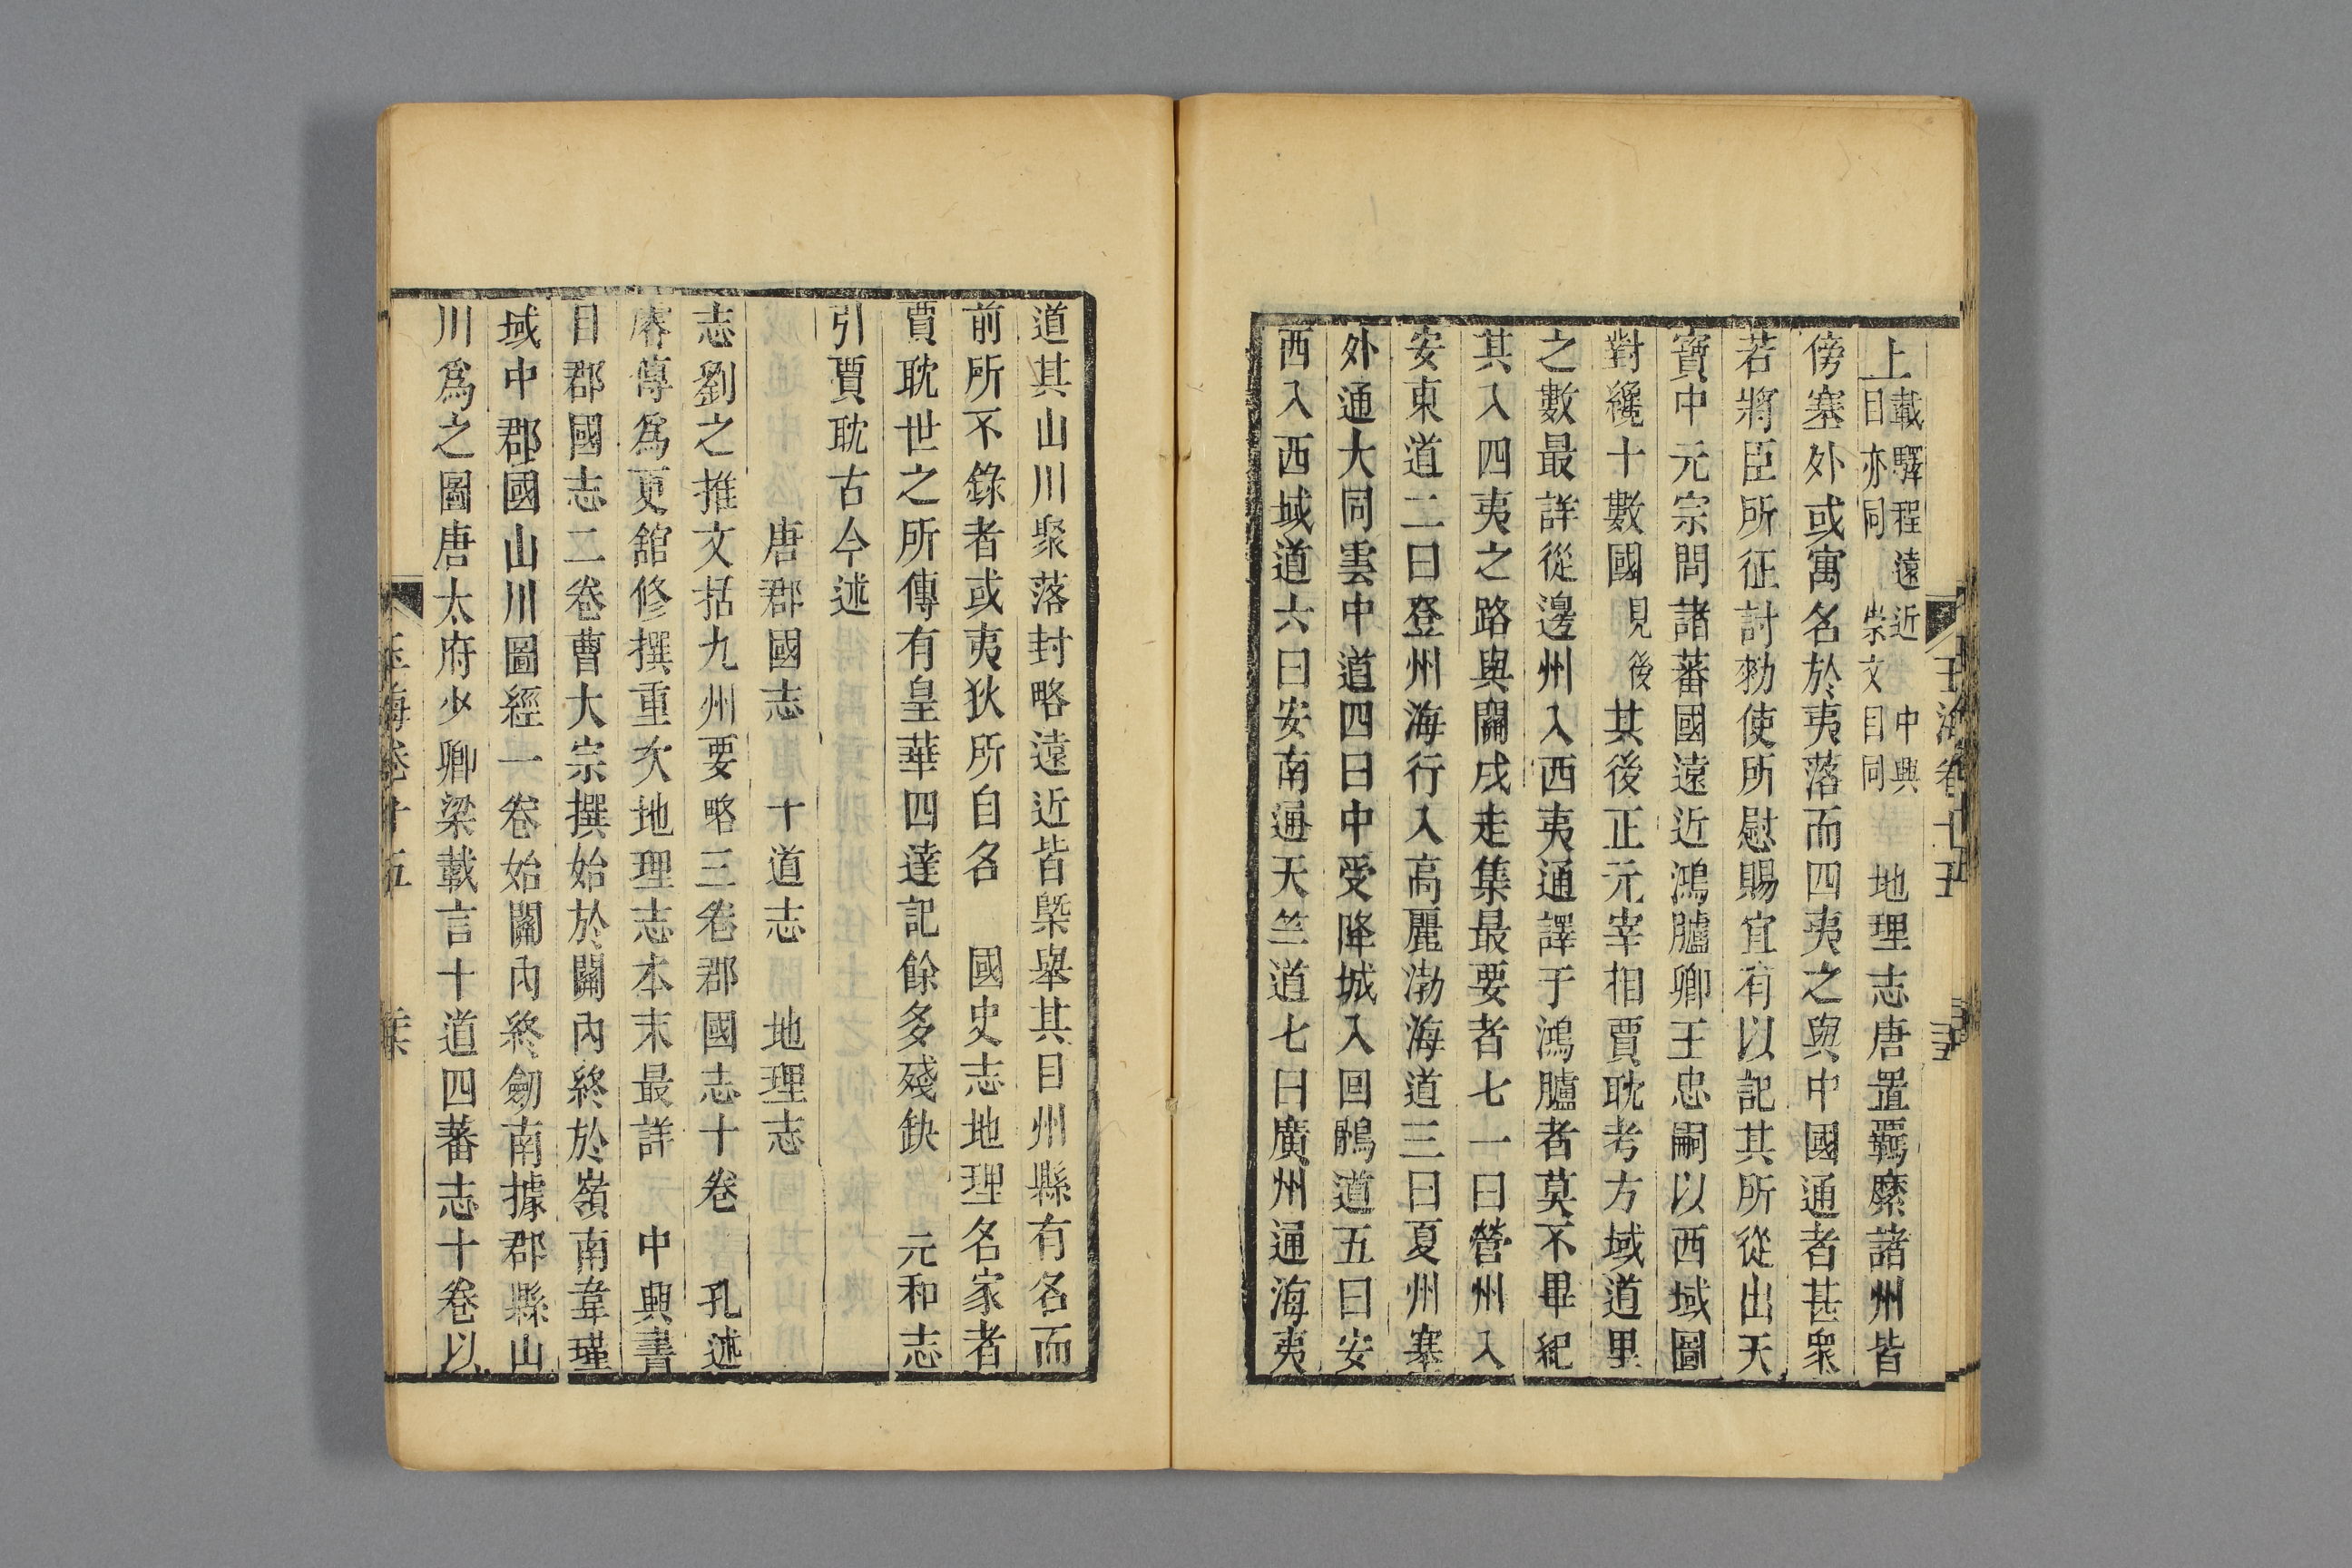 上載驛程遠近 中興
目亦同 崇文目同 地理志唐置羈縻諸州皆
傍塞外或寓名於夷落而四夷之與中國通者甚衆
若將臣所征討勑使所慰賜宜有以記其所從出天
寶中元宗問諸蕃國遠近鴻臚卿王忠嗣以西域圖
對纔十數國見後其後正元宰相賈耽考方域道里
之數最詳從邊州入西夷通譯于鴻臚者莫不畢紀
其入四夷之路與關戍走集最要者七一曰營州入
安東道二曰登州海行入高麗渤海道三曰夏州塞
外通大同雲中道四曰中受降城入回鶻道五曰安
西入西域道六曰安南通天竺道七曰廣州通海夷
道其山川聚落封略遠近皆槩舉其目州縣有名而
前所不錄者或夷狄所自名 國史志地理名家者
賈耽世之所傳有皇華四達記餘多殘缺 元和志
引賈耽古今述
唐郡國志 十道志 地理志
志劉之推文括九州要略三卷郡國志十卷 孔述
睿傳爲更舘修撰重次地理志本末最詳 中興書
目郡國志二卷曹大宗撰始於關內終於嶺南韋瑾
域中郡國山川圖經一卷始關內終劒南據郡縣山
川爲之圖唐太府少卿梁載言十道四蕃志十卷以
玉海卷十五